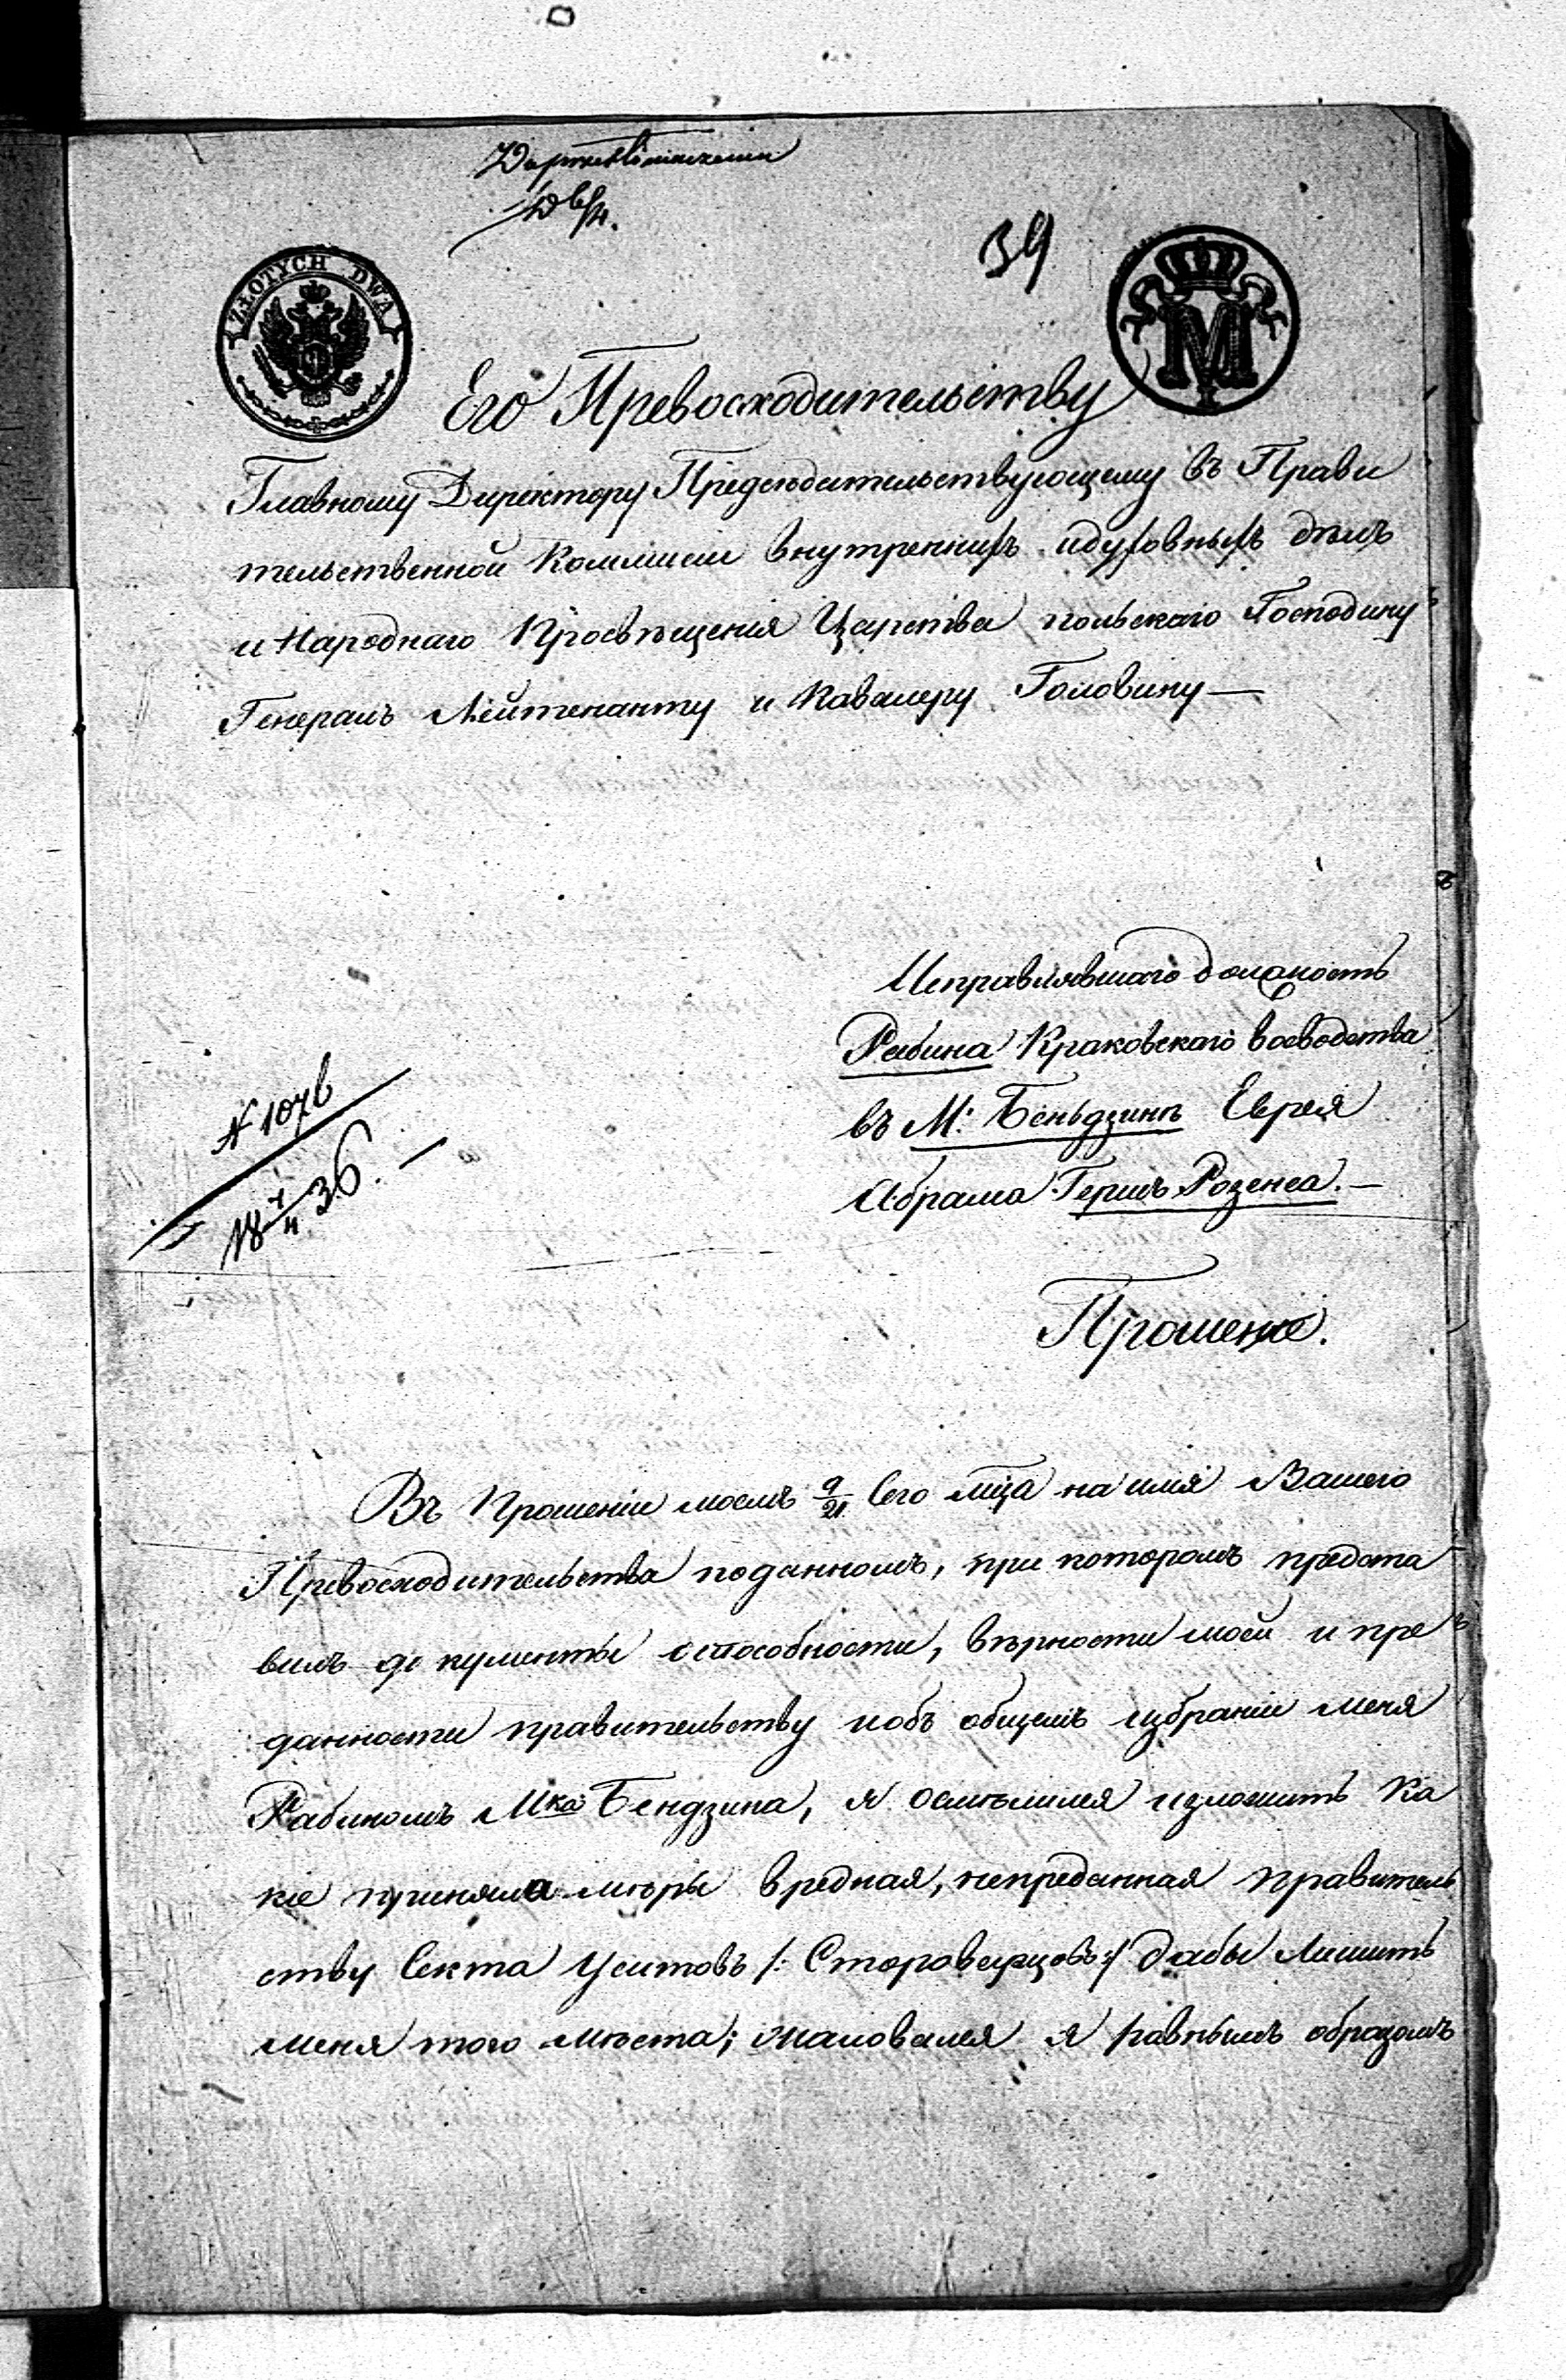 39
ZŁOTYCH DWA
M
Его Превосходительству
Главному Директору Предсѣдательствующему въ Прави
тельственной Коммисіи внутреннихъ и духовныхъ дѣлъ
и Народнаго Просвѣщенія Царства польскаго Господину
Генералъ Лейтенанту и Кавалеру Головину—
Исправлявшаго должность
Рабина Краковскаго воеводства
въ М: Беньдзинѣ Еврея
Абрама Гершъ Розенеа.—
Прошеніе.
N 1076
18 7/4 36.—
Въ Прошеніи моемъ 9/21 Сего мца на имя Вашего
Превосходительства поданномъ, при которомъ предста
вилъ документы способности, вѣрности моей и пре
данности правительству и объ общемъ избраніи меня
Рабиномъ Мка Бендзина, я осмѣлился изложить Ка
кіе приняла мѣры вредная, непреданная правитель
ству Секта Уситовъ /: Староверцовъ:/ дабы Лишить
меня того мѣста; жаловался я равнымъ образомъ